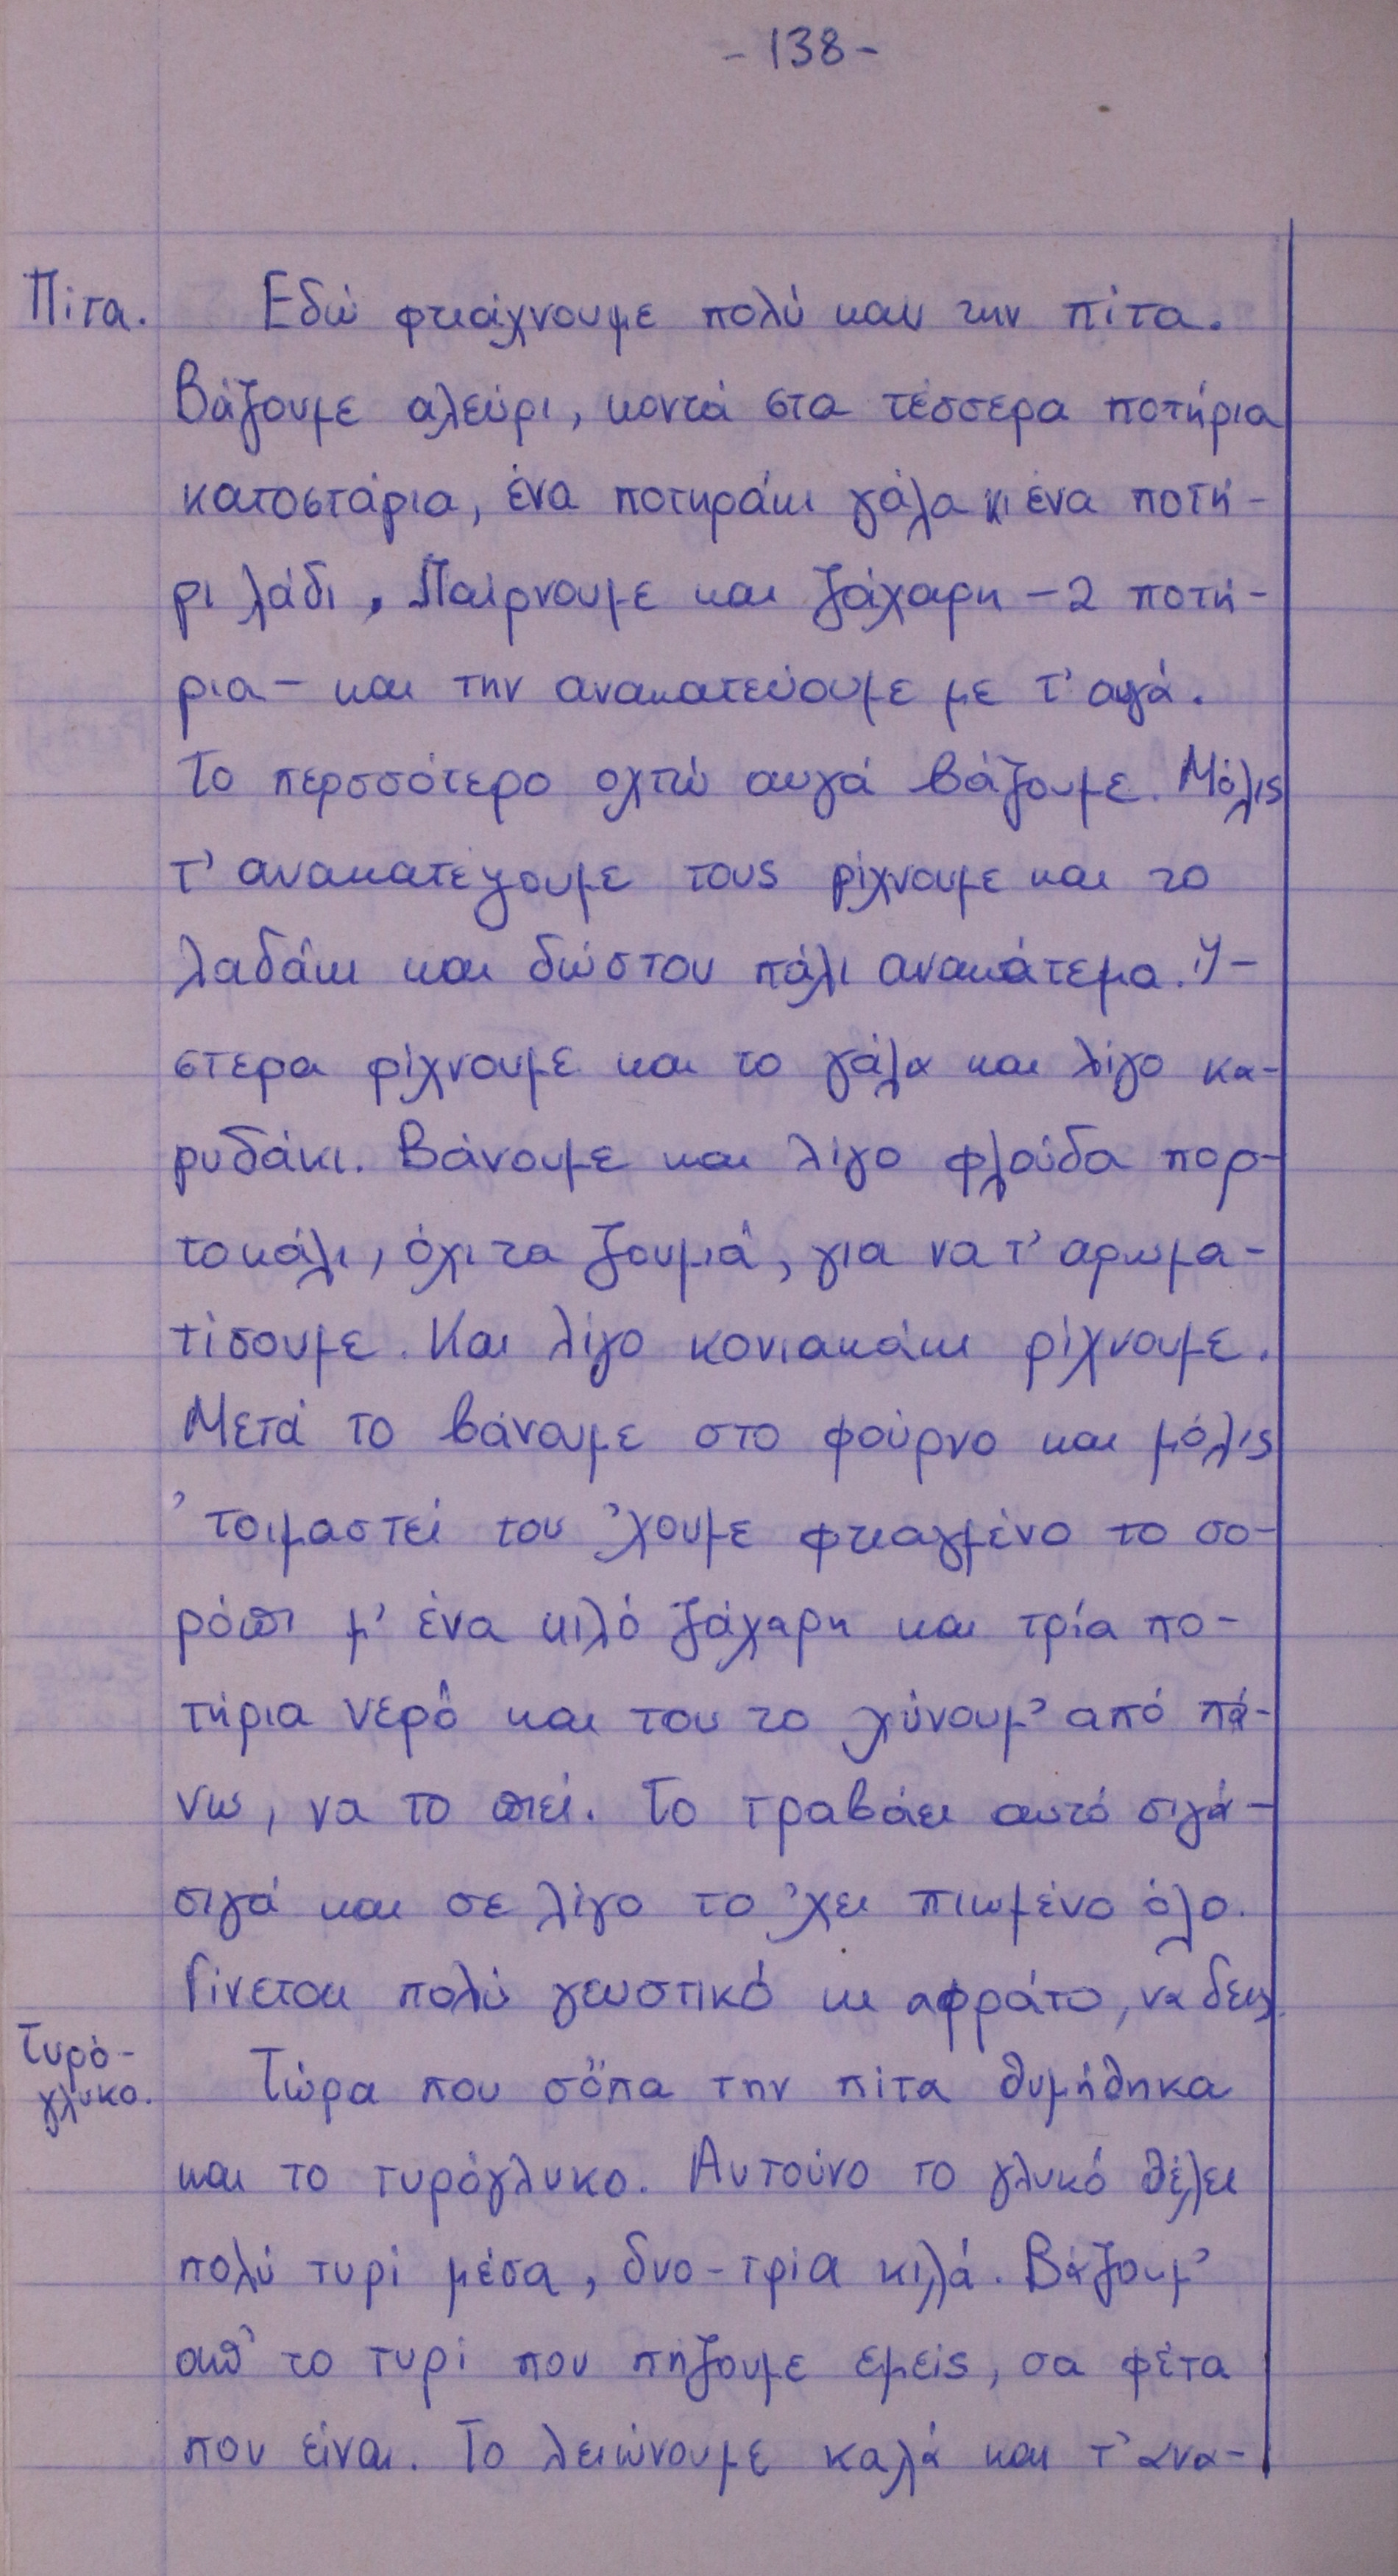 - 138 -
Πίτα. Εδώ φτιάχνουμε πολύ και την πίτα.
Βάζουμε αλεύρι, κοντά στα τέσσερα ποτήρια
κατοστάρια, ένα ποτηράκι γάλα κι ένα ποτή-
ρι λάδι. Παίρνουμε και ζάχαρη - 2 ποτή-
ρια - και την ανακατεύουμε με τ' αυγά.
Το περσσότερο οχτώ αυγά βάζουμε. Μόλις
τ' ανακατέψουμε τους ρίχνουμε και το
λαδάκι και δώστου πάλι ανακάτεμα. Ύ-
στερα ρίχνουμε και το γάλα και λίγο κα-
ρυδάκι. Βάνουμε και λίγο φλούδα πορ-
τοκάλι, όχι τα ζουμιά, για να τ' αρωμα-
τίσουμε. Και λίγο κονιακάκι ρίχνουμε.
Μετά το βάνουμε στο φούρνο και μόλις
'τοιμαστεί του 'χουμε φτιαγμένο το σο-
ρόπι μ' ένα κιλό ζάχαρη και τρία πο-
τήρια νερό και του το χύνουμ' από πά-
νω, να το πιεί. Το τραβάει αυτό σιγά-
σιγά και σε λίγο το 'χει πιωμένο όλο.
Γίνεται πολύ γευστικό κι αφράτο, να δεις.
Τυρό-
γλυκο. Τώρα που σόπα την πίτα θυμήθηκα
και το τυρόγλυκο. Αυτούνο το γλυκό θέλει
πολύ τυρί μέσα, δυο-τρία κιλά. Βάζουμ'
απ' το τυρί που πήζουμε εμείς, σα φέτα
που είναι. Το λειώνουμε καλά και τ' ανα-